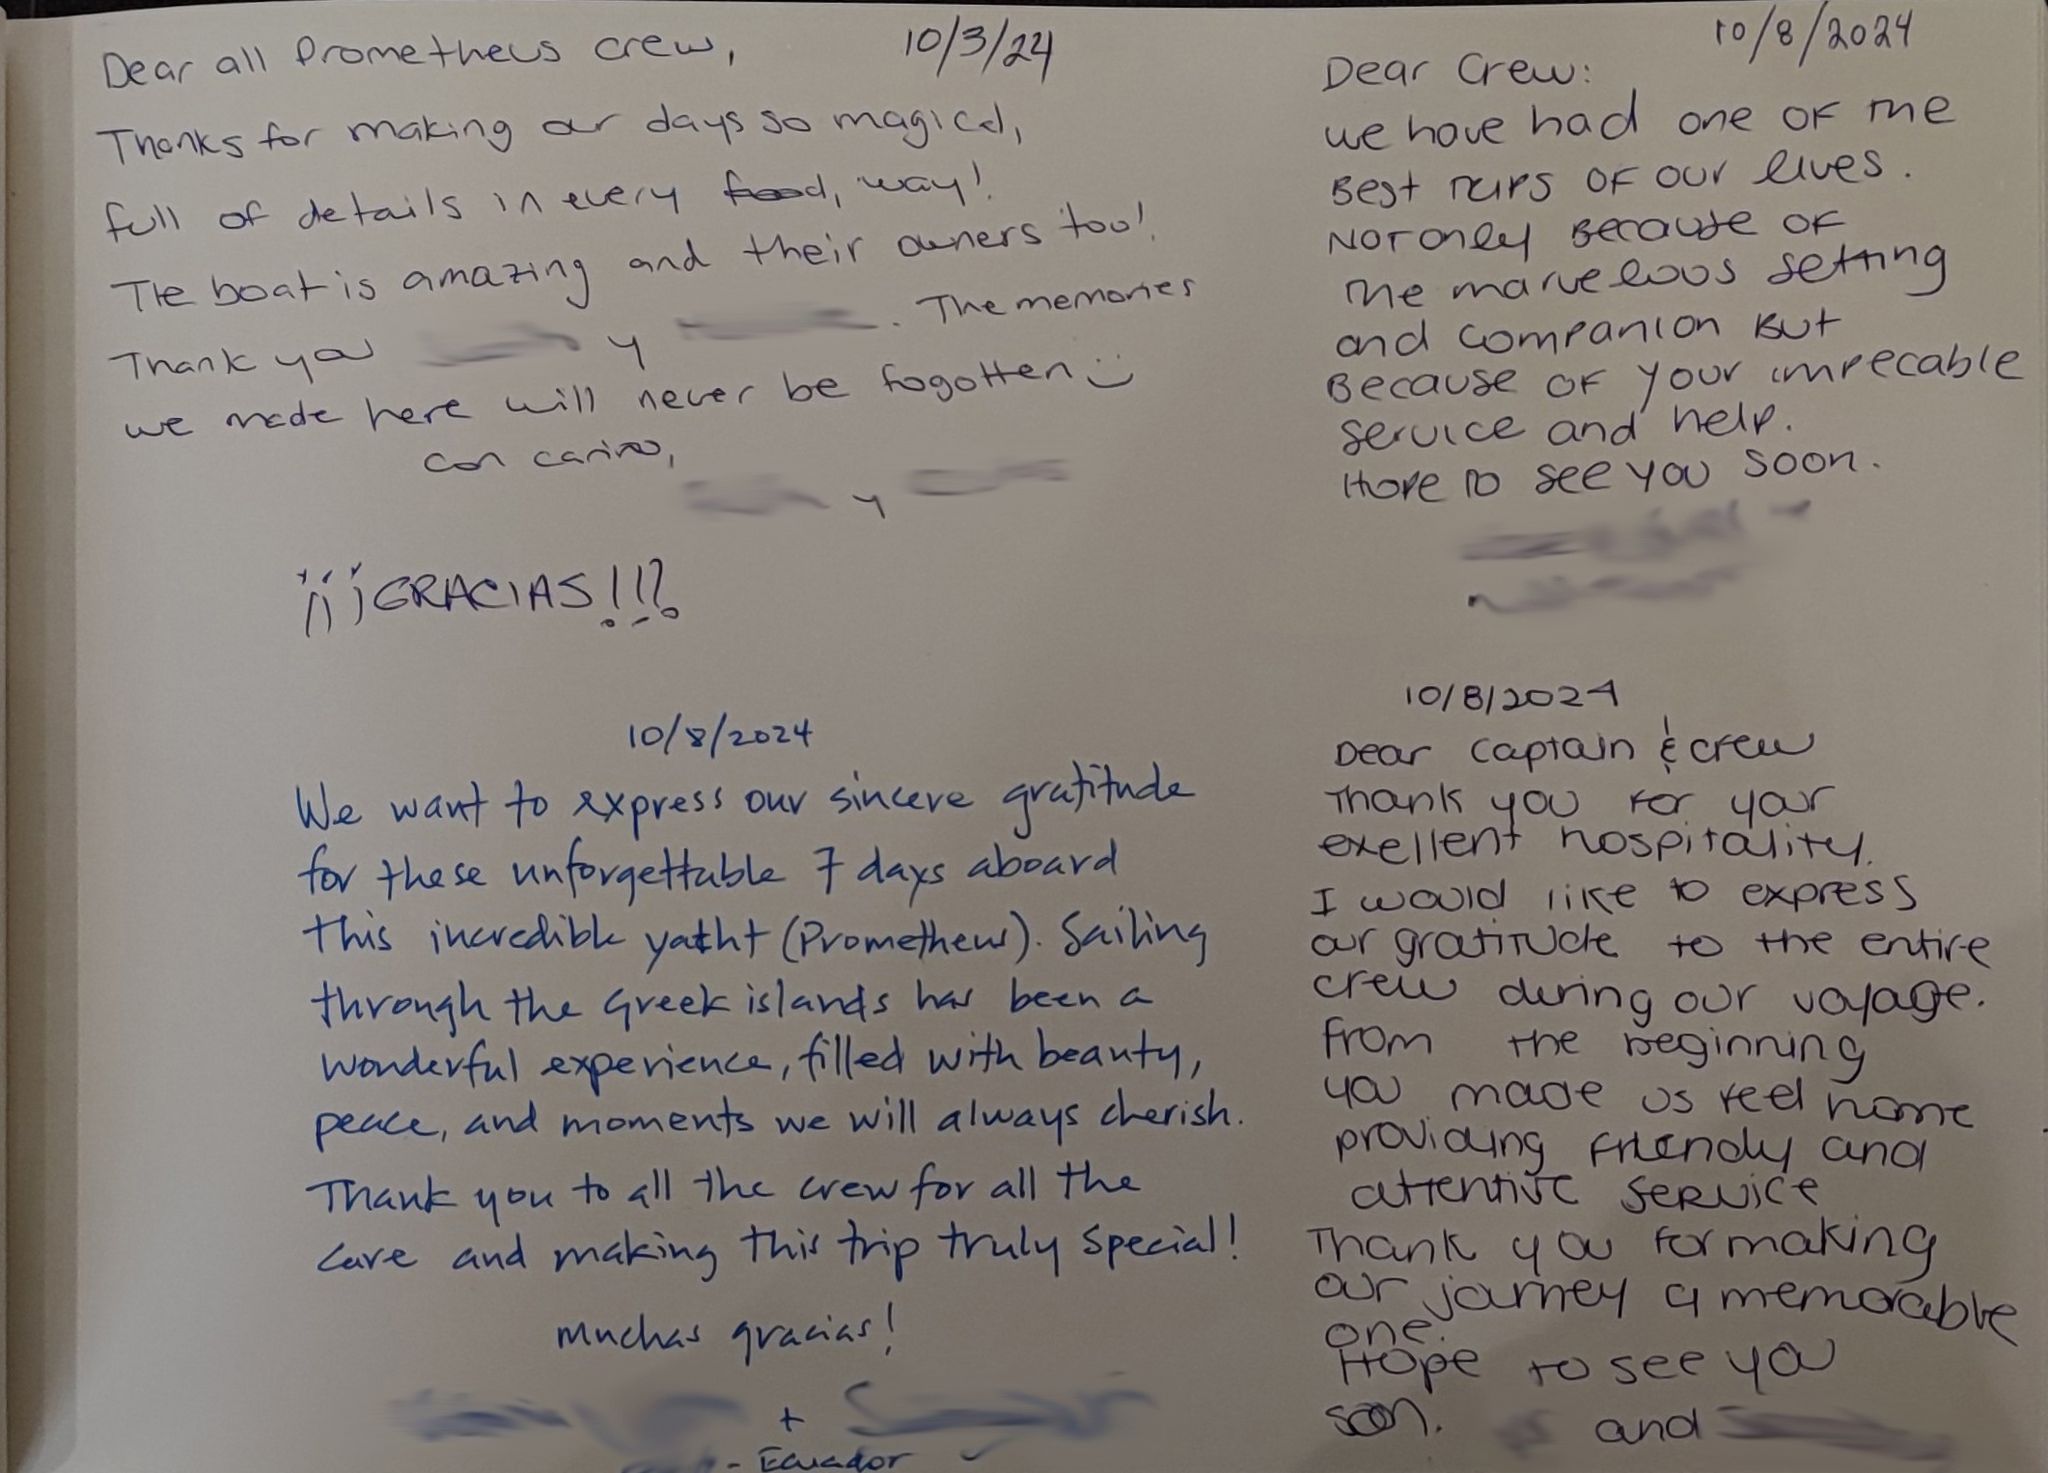 Dear all Prometheus crew,
10/3/24
Thanks for making our days so magical,
full of details in every food, way!
The boat is amazing and their owners too!
Thank you y . The memories
we made here will never be fogotten :)
con cariño,
y
¡¡¡GRACIAS!!!
10/8/2024
We want to express our sincere gratitude
for these unforgettable 7 days aboard
this incredible yatht (Prometheus). Sailing
through the Greek islands has been a
wonderful experience, filled with beauty,
peace, and moments we will always cherish.
Thank you to all the crew for all the
care and making this trip truly special!
muchas gracias!
+
- Ecuador
10/8/2024
Dear Crew:
we have had one of the
Best trips of our lives.
Not only Because of
the marvelous setting
and companion But
Because of your impecable
service and help.
Hope to see you soon.
10/8/2024
Dear Captain & crew
Thank you for your
exellent hospitality.
I would like to express
our gratitude to the entire
crew during our voyage.
From the beginning
you made us feel home
providing friendly and
attentive service
Thank you for making
our journey a memorable
one.
Hope to see you
soon. and